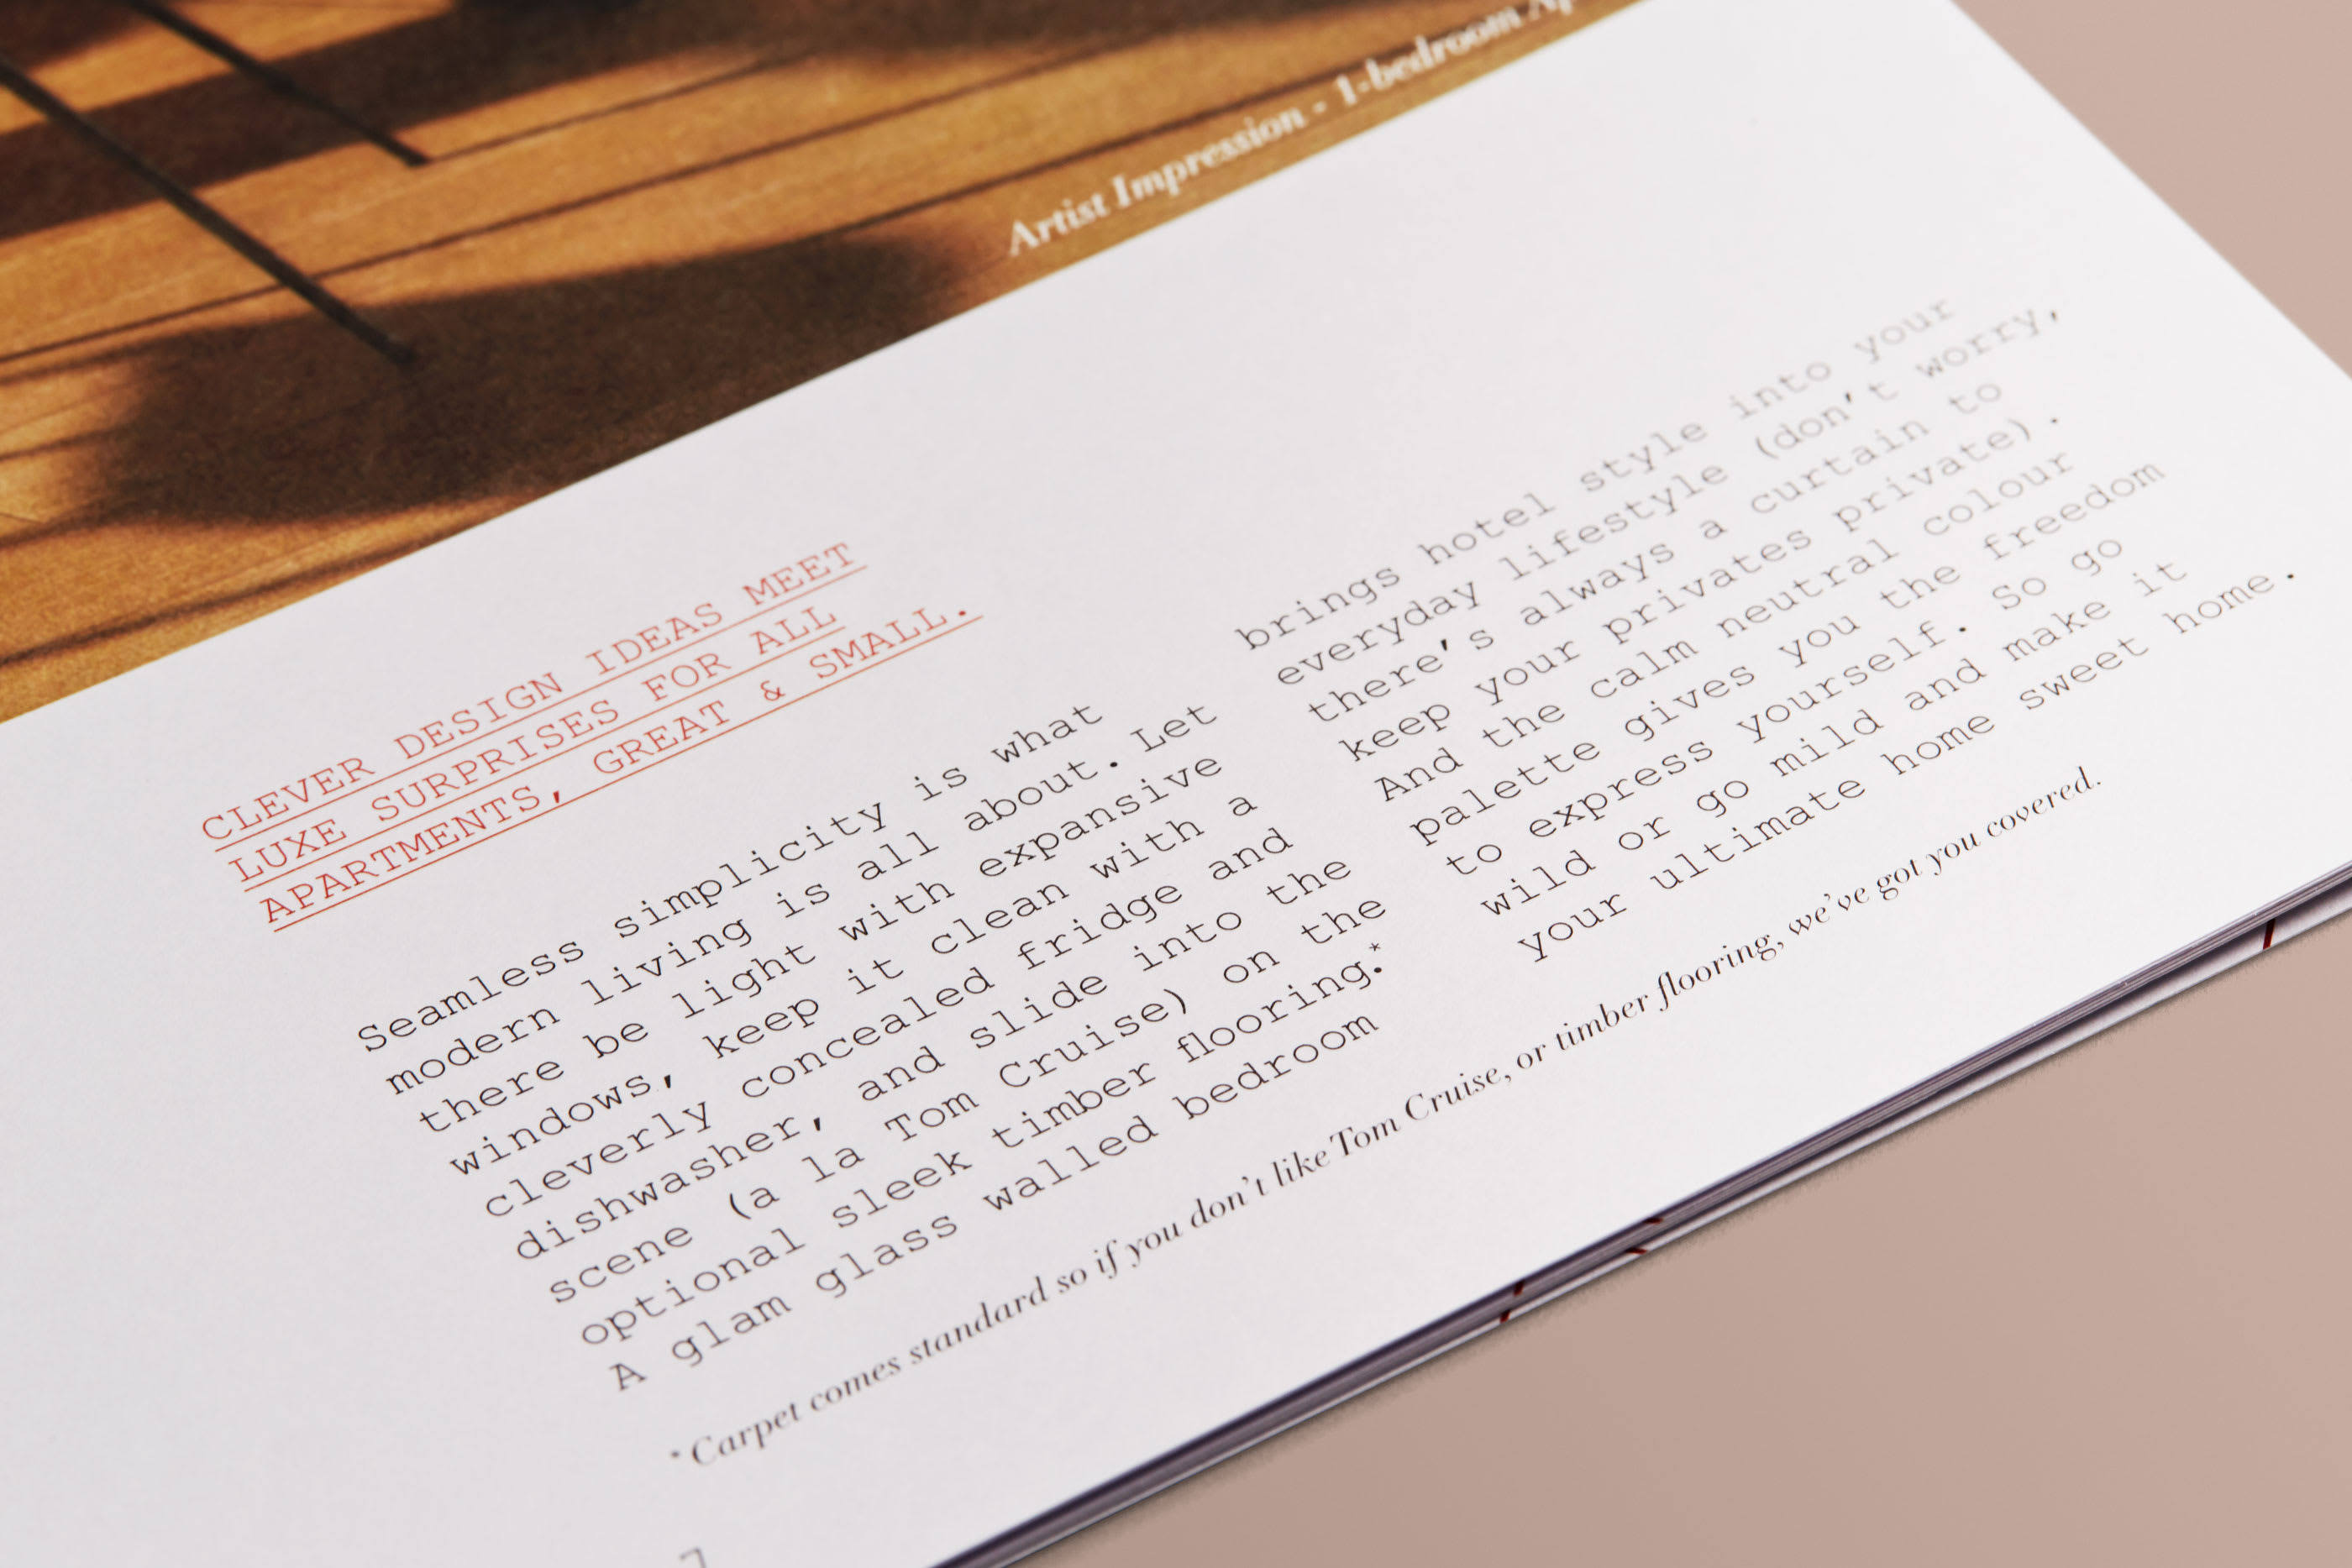 Artist Impression - 1-bedroom
CLEVER DESIGN IDEAS MEET
LUXE SURPRISES FOR ALL
APARTMENTS, GREAT & SMALL.
Seamless simplicity is what
modern living is all about. Let
there be light with expansive
windows, keep it clean with a
cleverly concealed fridge and
dishwasher, and slide into the
scene (a la Tom Cruise) on the
optional sleek timber flooring.*
A glam glass walled bedroom
brings hotel style into your
everyday lifestyle (don't worry,
there's always a curtain to
keep your privates private).
And the calm neutral colour
palette gives you the freedom
to express yourself. So go
wild or go mild and make it
your ultimate home sweet home.
* Carpet comes standard so if you don't like Tom Cruise, or timber flooring, we've got you covered.